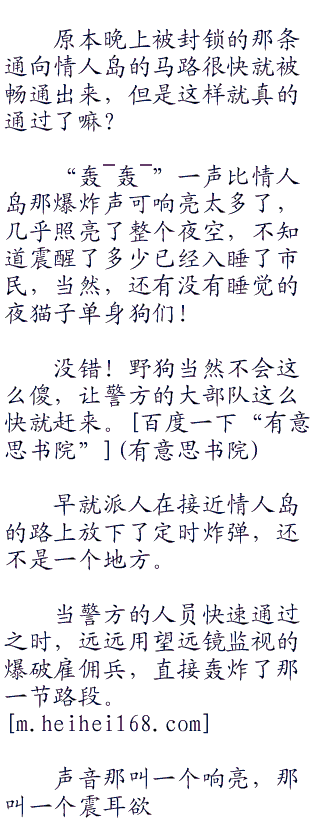 原本晚上被封锁的那条
通向情人岛的马路很快就被
畅通出来，但是这样就真的
通过了嘛？
“轰¯轰¯”一声比情人
岛那爆炸声可响亮太多了，
几乎照亮了整个夜空，不知
道震醒了多少已经入睡了市
民，当然，还有没有睡觉的
夜猫子单身狗们！
没错！野狗当然不会这
么傻，让警方的大部队这么
快就赶来。[百度一下“有意
思书院”](有意思书院)
早就派人在接近情人岛
的路上放下了定时炸弹，还
不是一个地方。
当警方的人员快速通过
之时，远远用望远镜监视的
爆破雇佣兵，直接轰炸了那
一节路段。
[m.heihei168.com]
声音那叫一个响亮，那
叫一个震耳欲